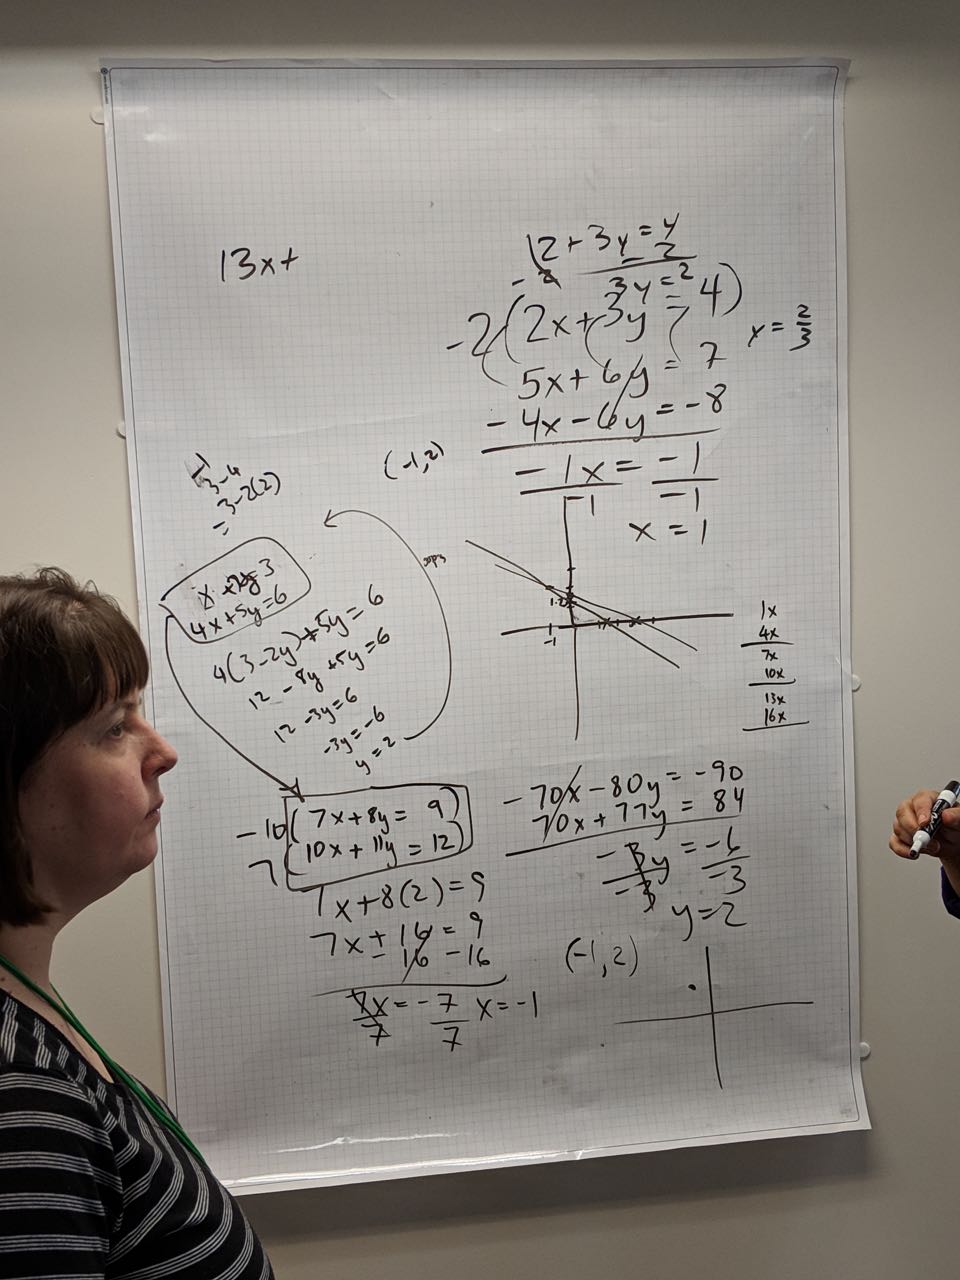 13x+
2 + 3y = 4
- 2 - 2
3y = 2
-2(2x + 3y = 4)
x = 2/3
5x + 6y = 7
- 4x - 6y = -8
- 1x = -1
-1 -1
x = 1
(-1,2)
3-4
= 3-2(2)
x + 2y = 3
4x + 5y = 6
4(3-2y) + 5y = 6
12 - 8y + 5y = 6
12 - 3y = 6
-3y = -6
y = 2
oops
-1
1x
4x
7x
10x
13x
16x
-10( 7x + 8y = 9 )
7( 10x + 11y = 12 )
7x + 8(2) = 9
7x + 16 = 9
- 16 - 16
7x = -7 x = -1
7 7
- 70x - 80y = -90
70x + 77y = 84
- 3y = -6
-3 -3
y = 2
(-1,2)